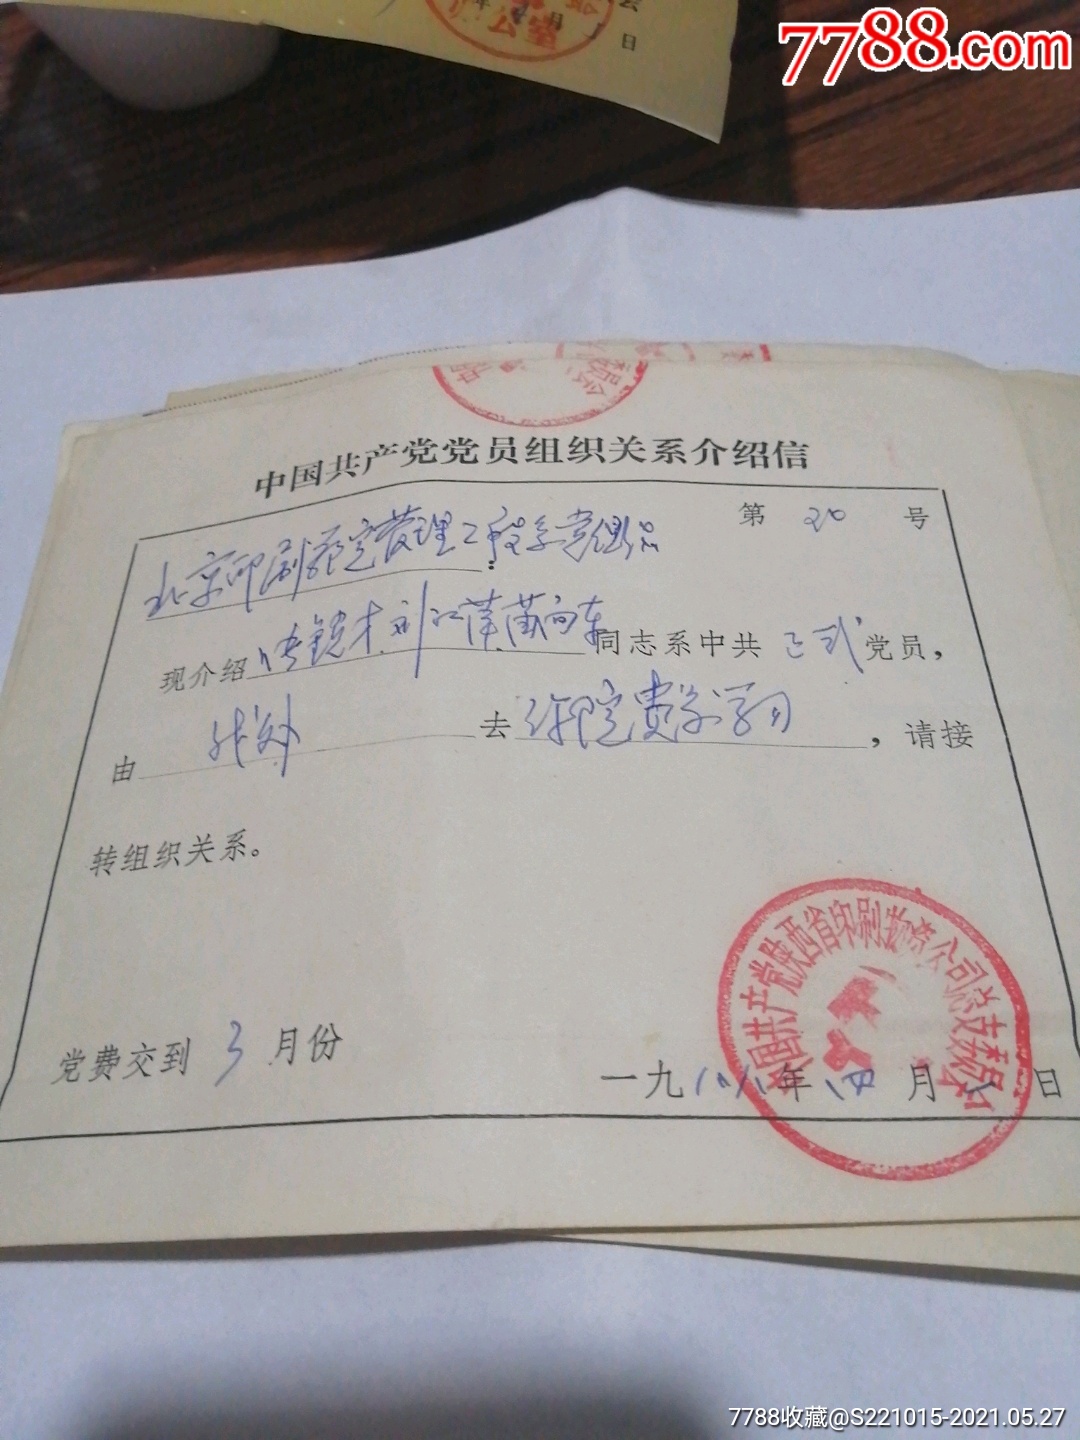 7788.com
公室
年 月 日
委员会
中国共产党党员组织关系介绍信
第 20 号
北京印刷学院管理工程系党组织:
现介绍 刘 同志系中共 正式 党员,
由 我处 去 你院 学习 ,请接
转组织关系。
中国共产党陕西省印刷物资公司总支委员会
党费交到 3 月份
一九八八年 四 月 日
7788收藏@S221015-2021.05.27